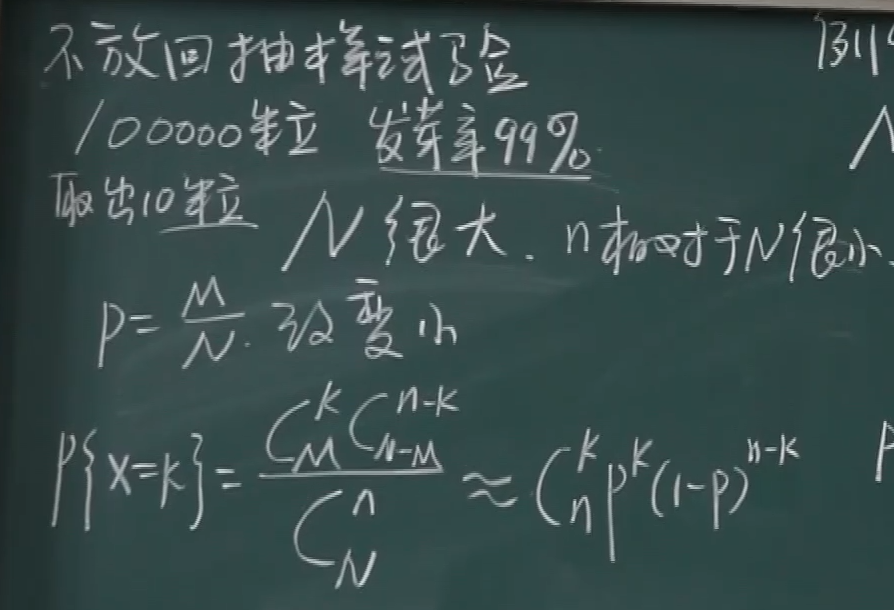 不放回抽样试验
100000粒 发芽率99%
取出10粒
N很大. n相对于N很小.
P=M/N. 改变小
P{X=k}=C_M^k C_{N-M}^{n-k}/C_N^n≈C_n^k p^k(1-p)^{n-k}
例